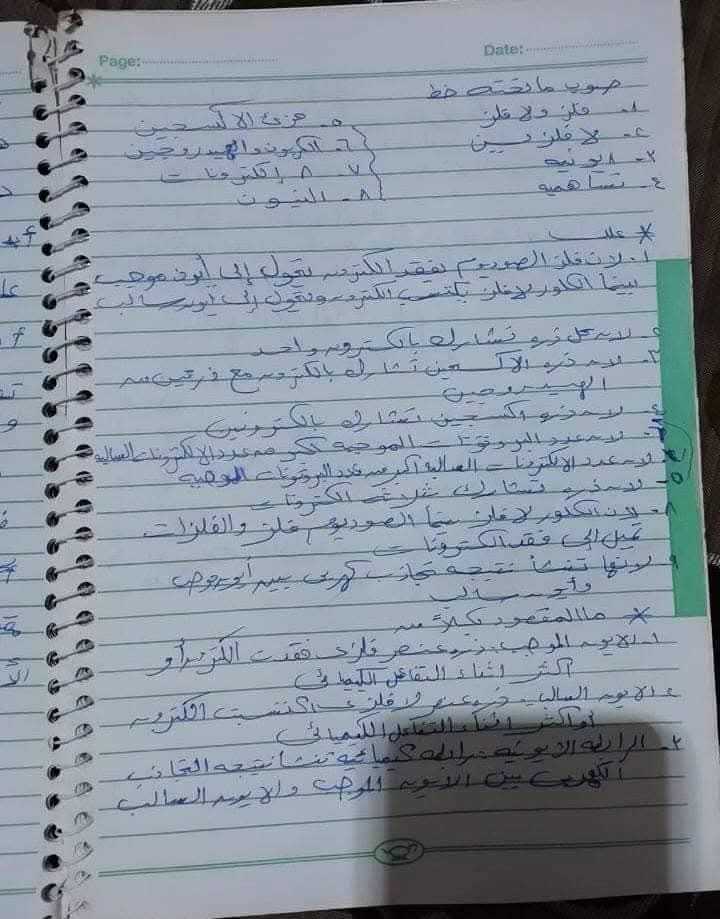 Page:
Date:
صوب ما تحته خط
١- فلز ولا فلز
٢- لا فلزين
٣- ايونيه
٤- تساهميه
٥- جزئ الاكسجين
٦- الكربون والهيدروجين
٧- ٨ إلكترونات
٨- النيون
* علل
١- لان فلز الصوديوم يفقد الكترون يتحول إلى أيون موجب
بينما الكلور لا فلز يكتسب الكترون ويتحول إلى ايون سالب
٢- لان كل ذره تشارك بالكترون واحد
٣- لان ذره الاكسجين تشارك بالكترون مع ذرتين من
الهيدروجين
٤- لان ذره اكسجين تشارك بالكترونين
لان عدد البروتونات الموجبه اكبر من عدد الالكترونات السالبه
لان عدد الالكترونات السالبه أكبر من عدد البروتونات الموجبه
٥- لان ذره تشارك الكترونات
٨- لان الكلور لا فلز بينما الصوديوم فلز والفلزات
تميل إلى فقد الكترونات
٩- لانها تنشأ نتيجه تجاذب كهربى بين أيون موجب
وأيون سالب
* ما المقصود بكلا من
١- الايون الموجب: ذره عنصر فلزى فقدت الكترون أو
أكثر اثناء التفاعل الكيميائى
٢- الايون السالب: ذره عنصر لا فلزى اكتسبت الكترون
أو أكثر اثناء التفاعل الكيميائى
٣- الرابطه الايونيه: رابطه كيميائيه تنشأ نتيجه التجاذب
الكهربى بين الأيون الموجب والايون السالب